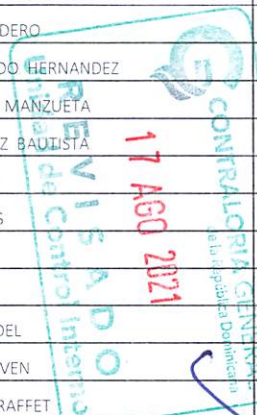 DERO
DO HERNANDEZ
MANZUETA
Z BAUTISTA
S
DEL
VEN
RAFFET
CONTRALORIA GENERAL
de la República Dominicana
17 AGO 2021
REVISADO
Unidad de Control Interno